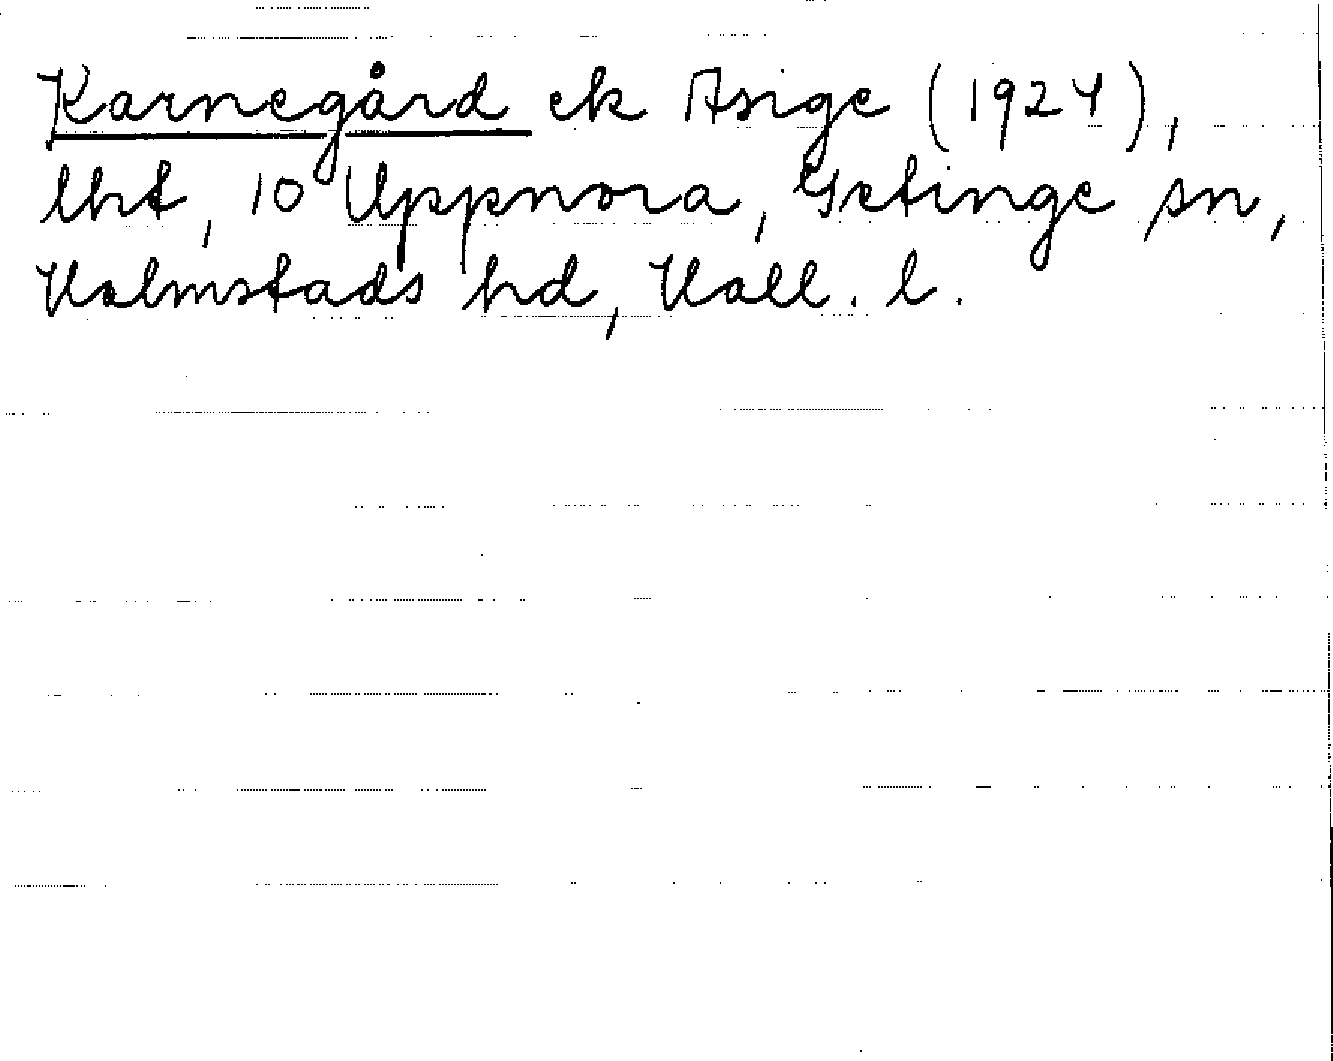 Karnegård ek Asige (1924),
lht, 10 Uppnora, Getinge sn,
Halmstads hd, Hall. l.